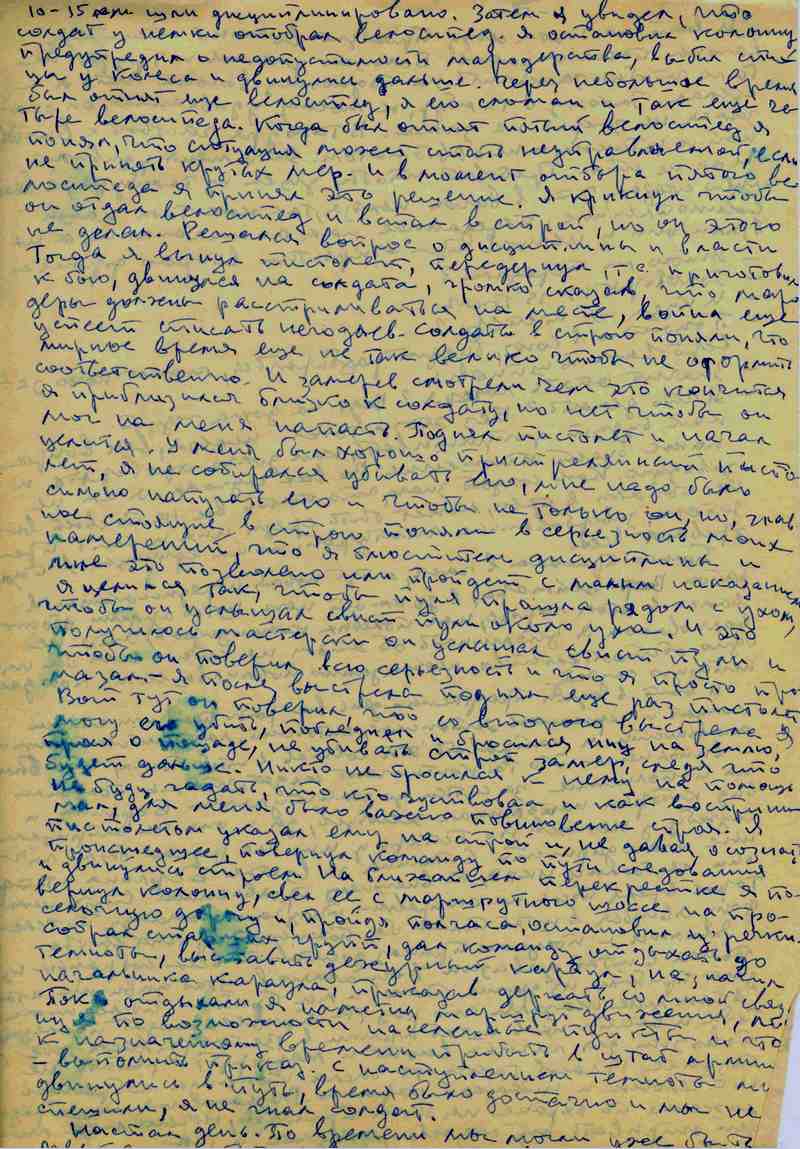 10-15 км шли дисциплинировано. Затем я увидел, что
солдат у немки отобрал велосипед. Я остановил колонну
предупредил о недопустимости мародерства, выбил спи-
цы у колеса и двинулись дальше. Через небольшое время
был отнят еще велосипед, я его сломал и так еще че-
тыре велосипеда. Когда был отнят пятый велосипед я
понял, что ситуация может стать неуправляемой, если
не принять крутых мер. И в момент отбора пятого ве
лосипеда я принял это решение. Я крикнул чтобы
он отдал велосипед и встал в строй, но он этого
не делал. Решался вопрос о дисциплины и власти
Тогда я вынул пистолет, передернул, т.е. приготовил
к бою, двинулся на солдата, громко сказав, что маро
деры должны расстреливаться на месте, война еще
успеет списать негодяев. Солдаты в строю поняли, что
мирное время еще не так велико чтобы не оформить
соответственно. И замерев смотрели чем это кончится
я приблизился близко к солдату, но нет чтобы он
мог на меня напасть. Поднял пистолет и начал
целится. У меня был хорошо пристрелянный писто
лет, я не собирался убивать его, мне надо было
сильно напугать его и чтобы не только он, но, глав
ное стоящие в строю поняли в серьезность моих
намерений, что я блюститель дисциплины и
мне это позволено или пройдет с малым наказанием
Я целился так, чтобы пуля прошла рядом с ухом,
чтобы он услышал свист пули около уха. И это
получилось мастерски он услышал свист пули и
чтобы он поверил всю серьезность и что я просто про
мазал - я после выстрела поднял еще раз пистолет
Вот тут он поверил, что со второго выстрела я
могу его убить, побледнел и бросился ниц на землю,
прося о пощаде, не убивать строй замер, следя что
будет дальше. Никто не бросился к нему на помощь
Не буду гадать, что кто чувствовал и как восприни
мал, для меня было важно повиновение строя. Я
пистолетом указал ему на строй и, не давая осознать
происшедшее, повернул команду по пути следования
и двинулись строем. На ближайшем перекрестке я по-
вернул колонну, свел ее с маршрутного шоссе на про-
селочную дорогу и, пройдя полчаса, остановил у речки.
собрал старших групп, дал команду отдыхать до
темноты, выставить дежурный караул, назначил
начальника караула, приказав держать со мной связь
Пока отдыхали я наметил маршрут движения,
по возможности населенные пункты и что
к назначенному времени прибыть в штаб армии
- выполнить приказ. С наступлением темноты мы
двинулись в путь, время было достачно и мы не
спешили, я не гнал солдат.
Настал день. По времени мы могли уже быть